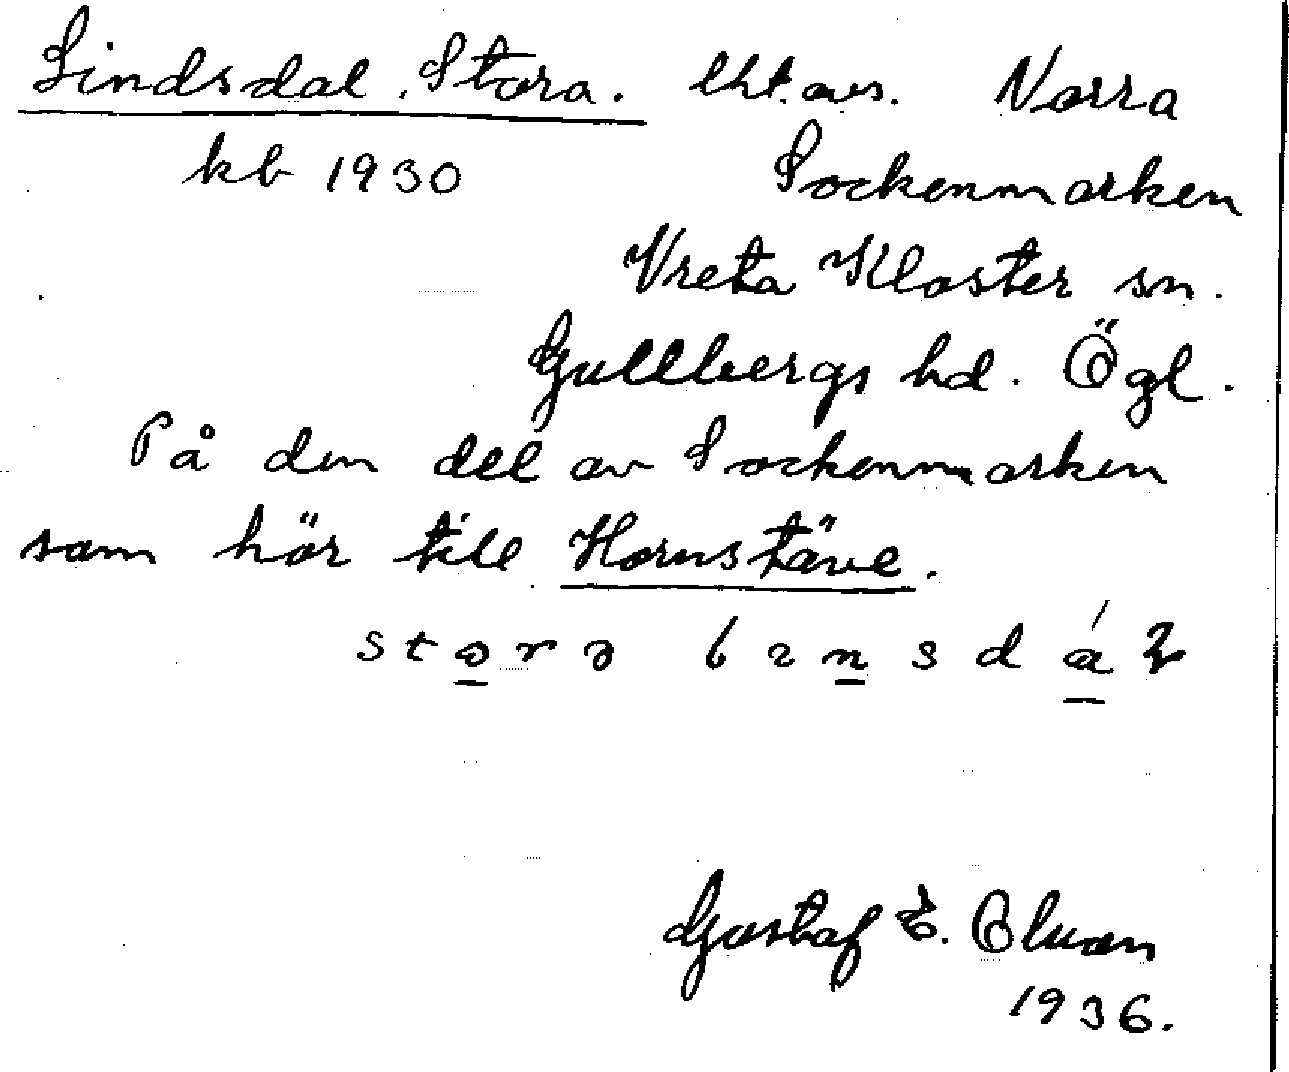 Lindsdal, Stora. lht. avs. Norra
kb 1930 Sockenmarken
Vreta Kloster sn.
Gullbergs hd. Ögl.
På den del av Sockenmarken
som hör till Hornstäve.
Gustaf E. Olsson
1936.